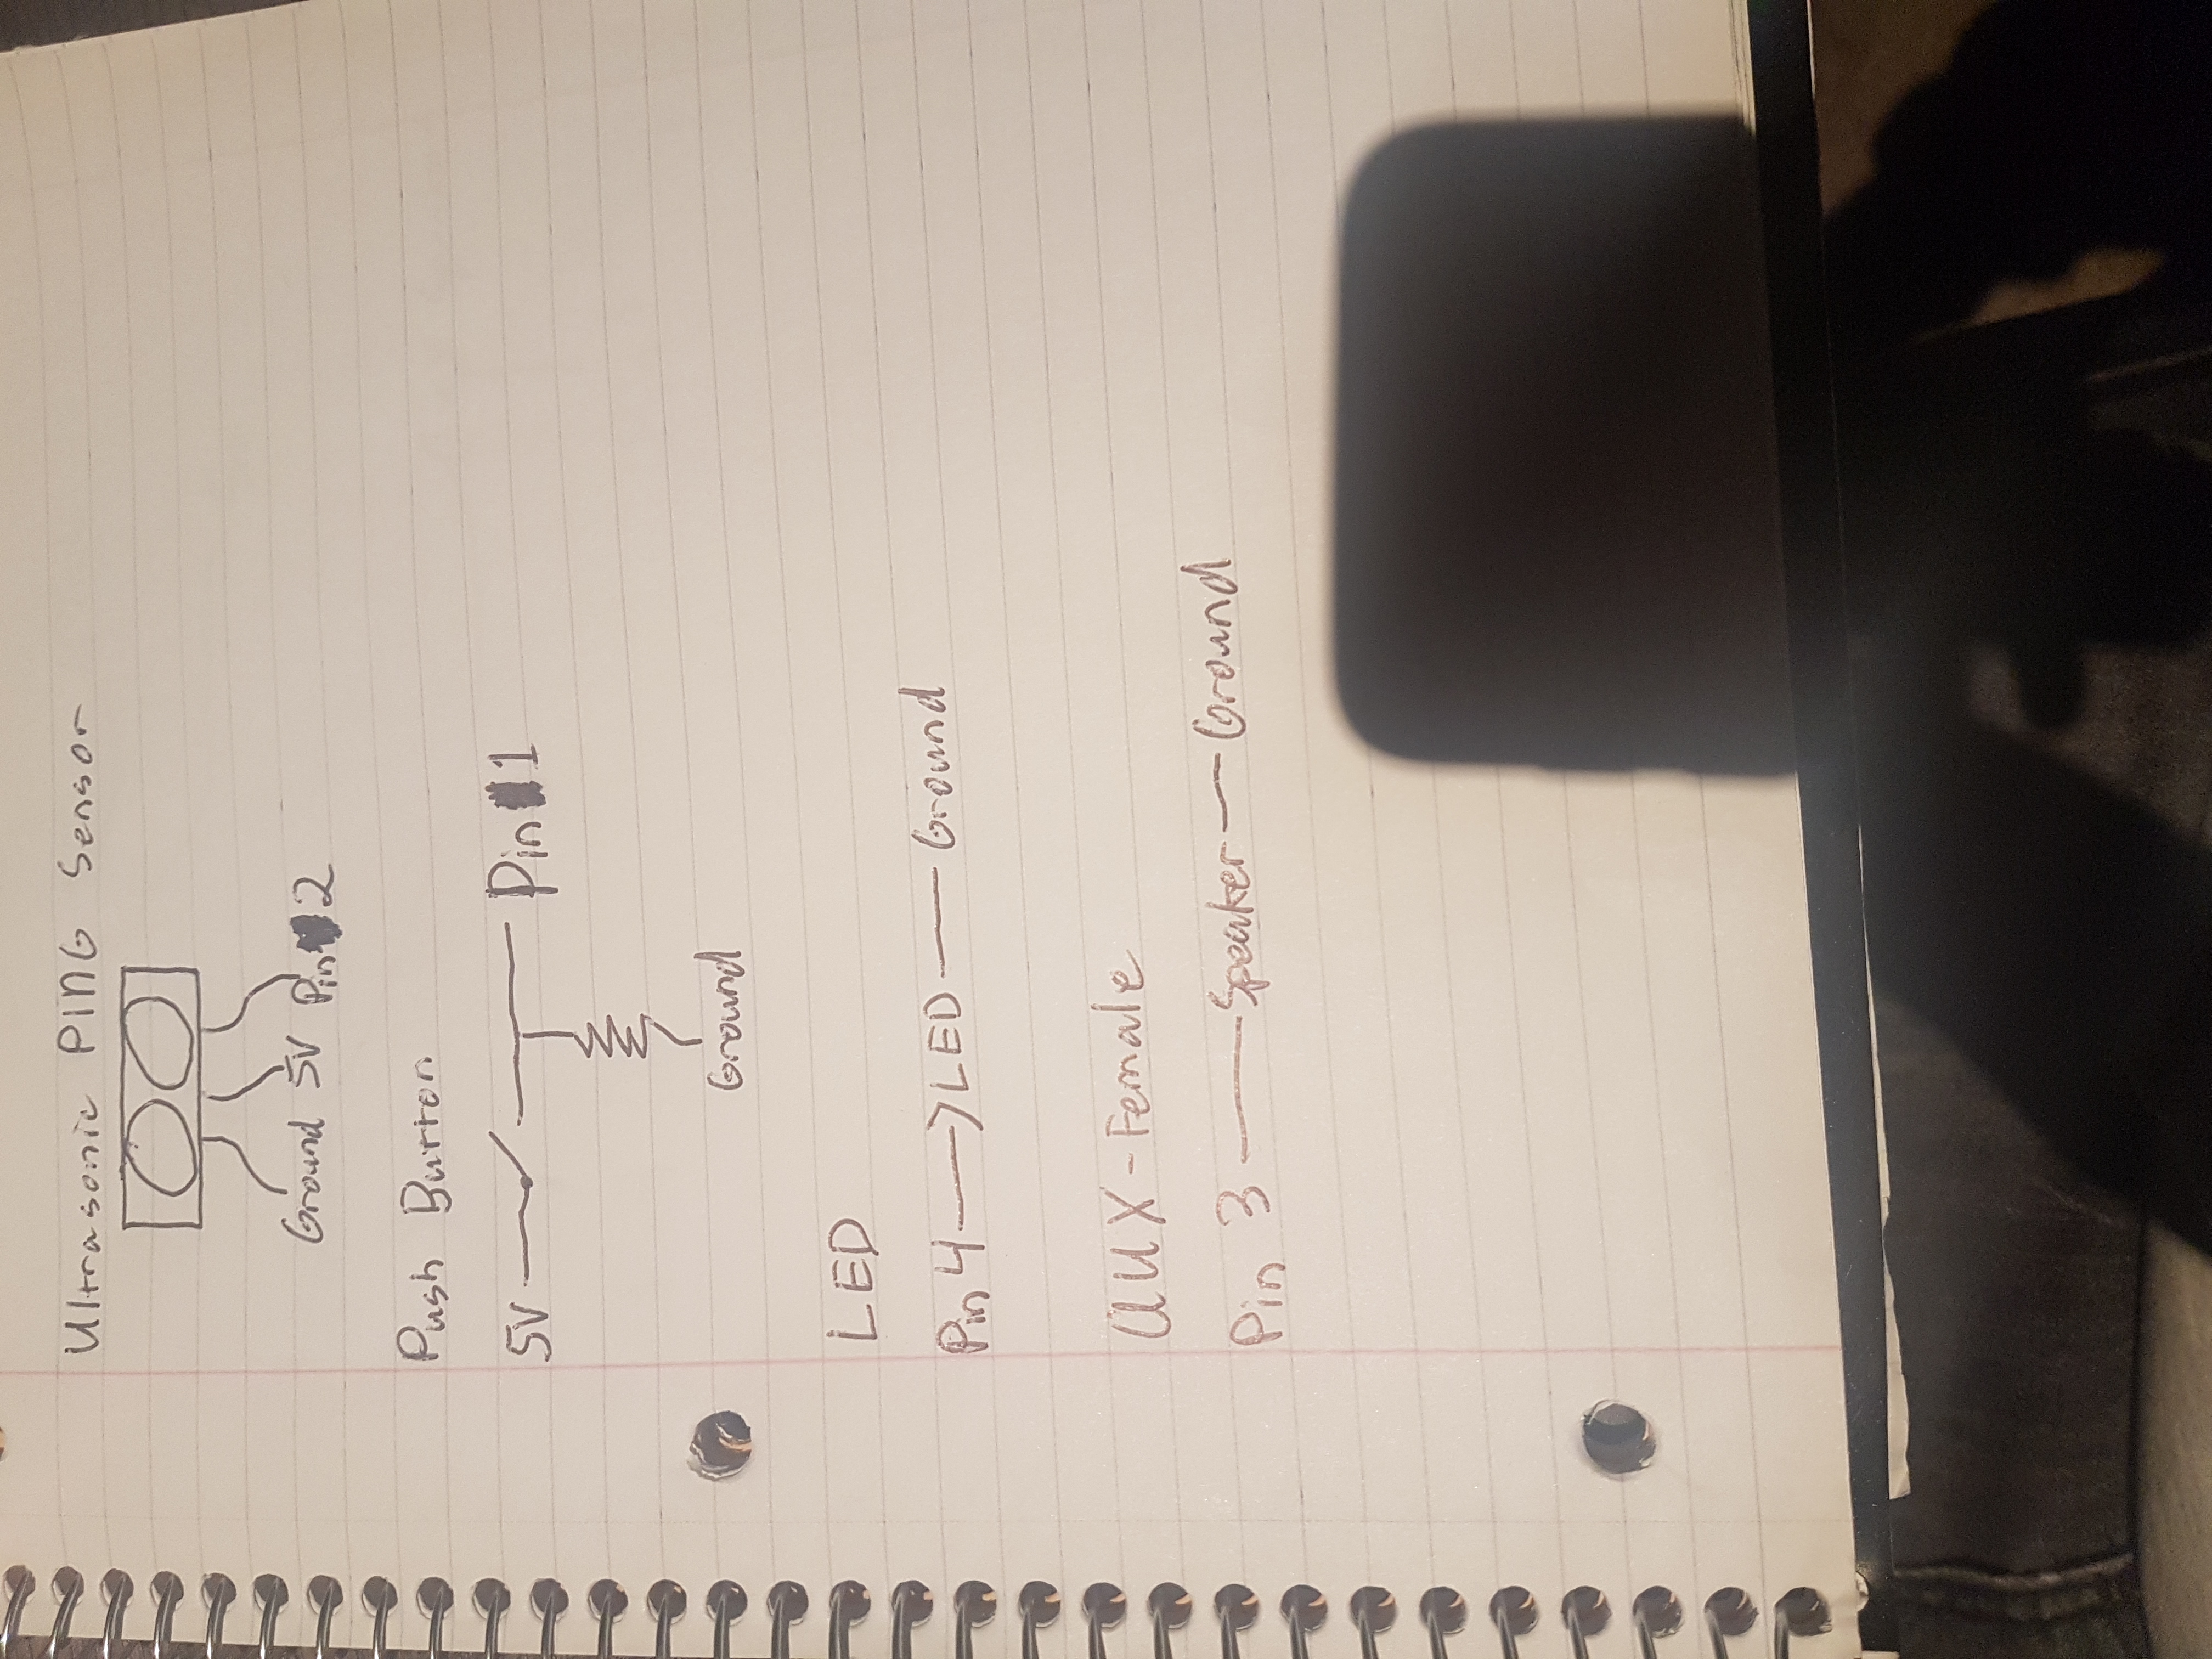 Ultrasonic PING Sensor
Ground 5V Pin 2
Push Button
5V Pin 1
Ground
LED
Pin 4 LED Ground
AUX - Female
Pin 3 Speaker Ground